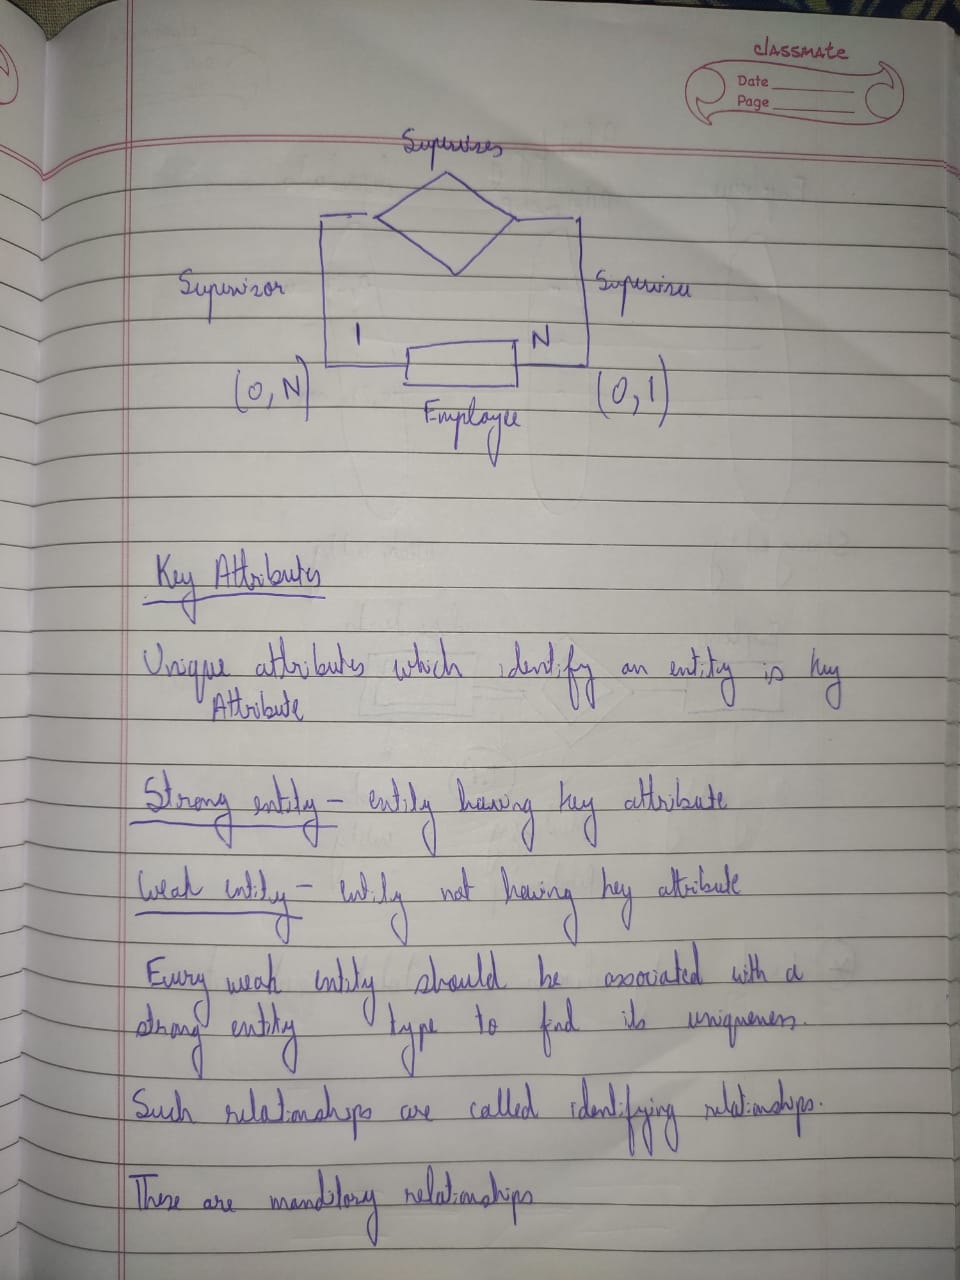 classmate
Date
Page
Supervises
Supervisor
Supervisee
1
N
(0, N)
(0, 1)
Employee
Key Attributes
Unique attributes which identify an entity is key
Attribute
Strong entity - entity having key attribute
Weak entity - entity not having key attribute
Every weak entity should be associated with a
strong entity type to find its uniqueness.
Such relationships are called identifying relationships.
These are manditory relationships